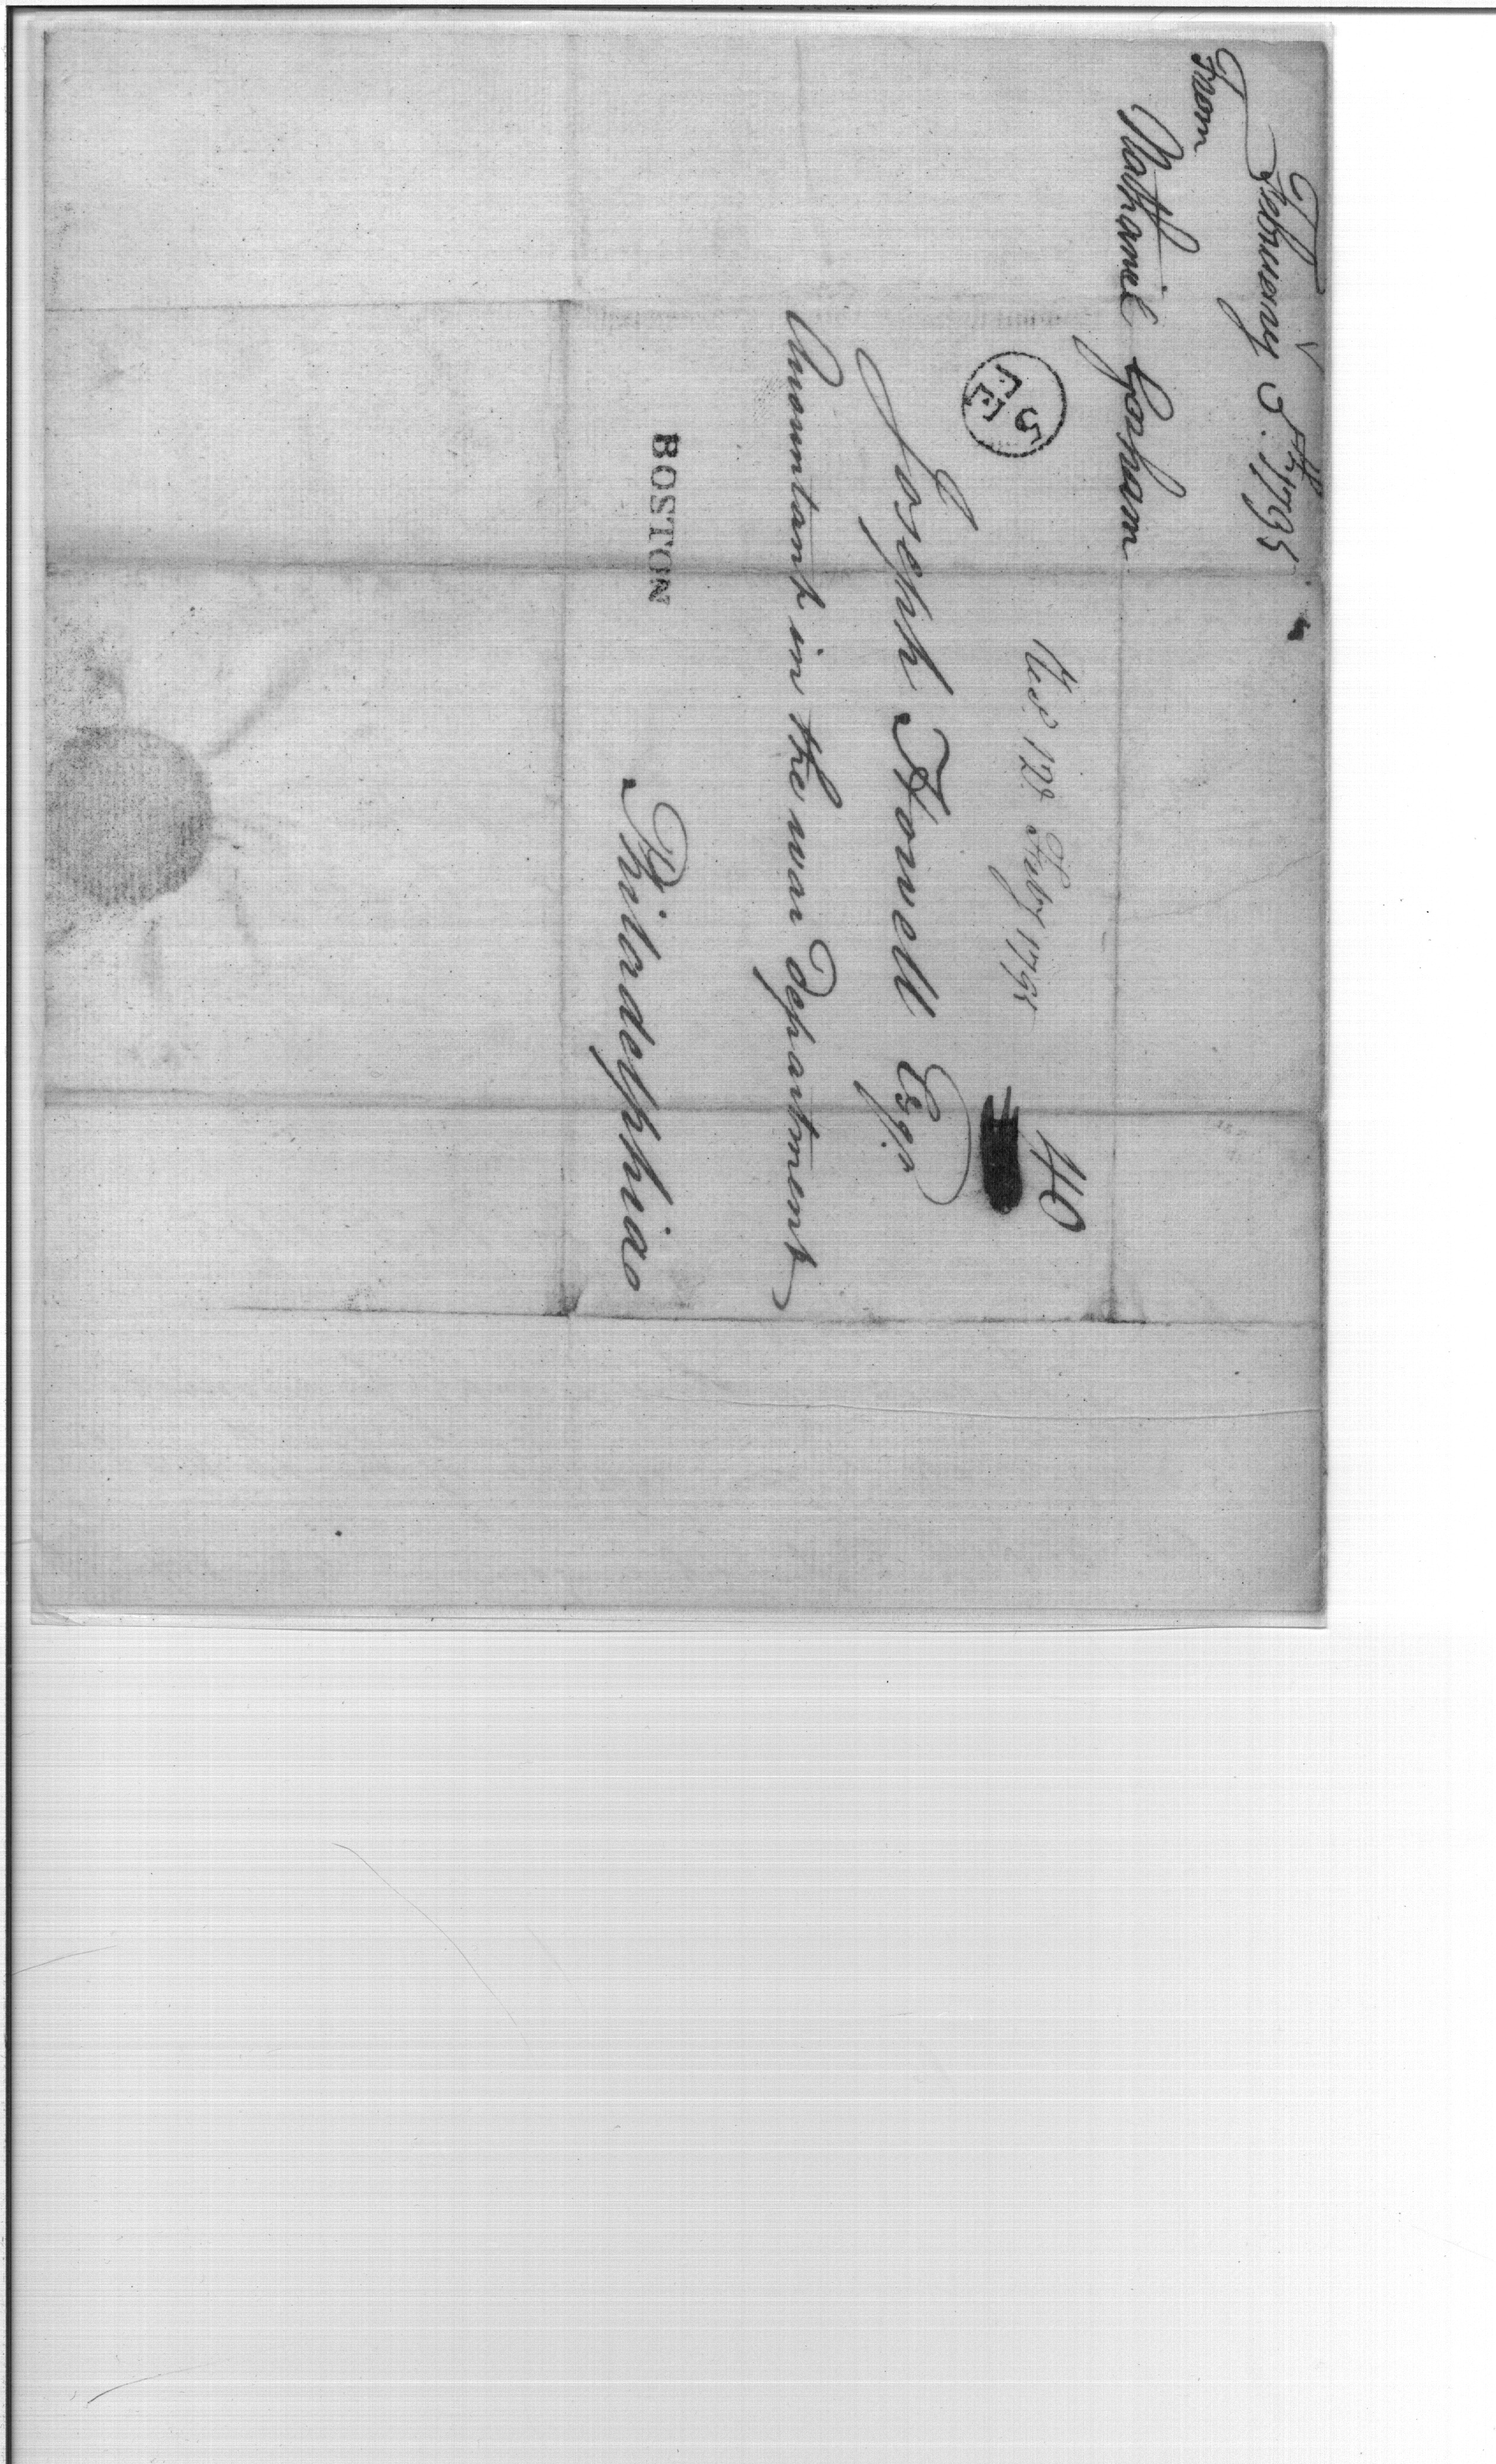 February 5th 1795
From
Nathaniel Gorham
5 FE
Recd 12th Feby 1795
40
Joseph Howell Esqr
Accountant in the war Department
BOSTON
Philadelphia